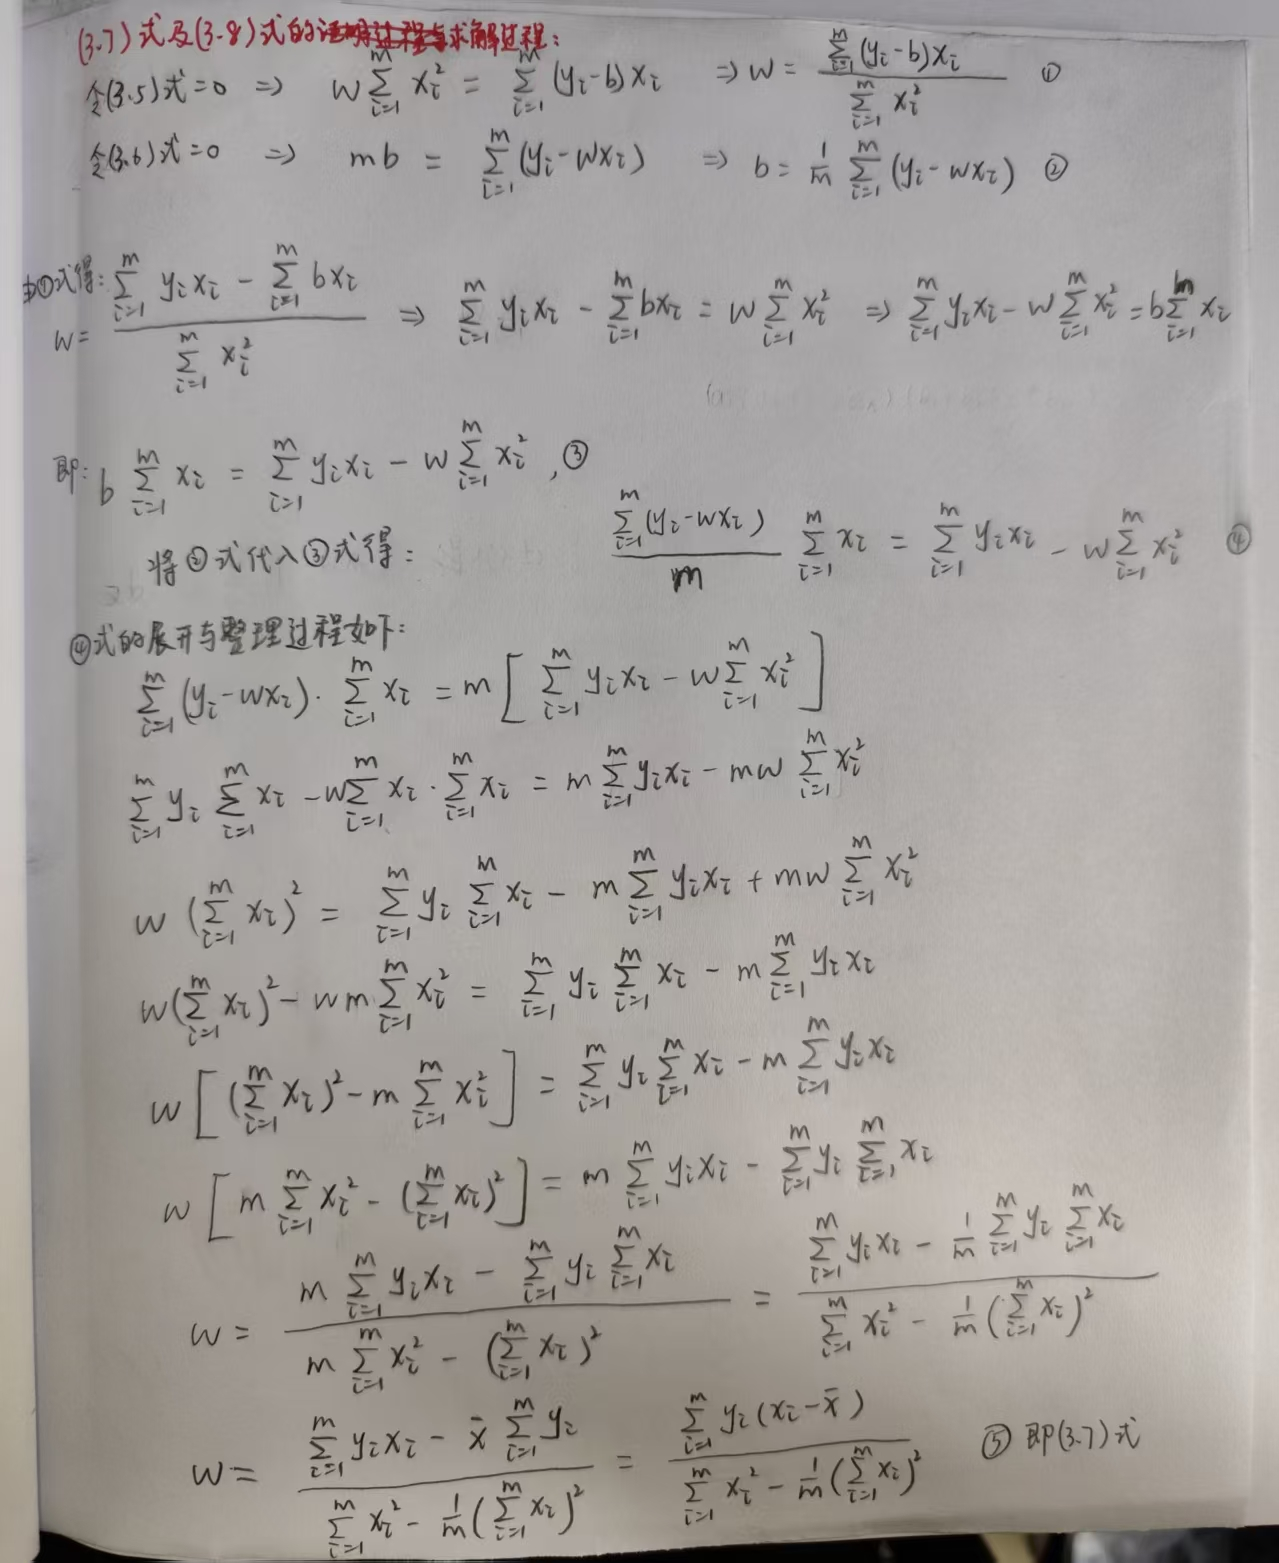 (3.7)式及(3.8)式的求解过程:
令(3.5)式=0 ⇒ w∑_{i=1}^{m} x_i^2 = ∑_{i=1}^{m} (y_i-b)x_i ⇒ w = \frac{∑_{i=1}^{m} (y_i-b)x_i}{∑_{i=1}^{m} x_i^2} ①
令(3.6)式=0 ⇒ mb = ∑_{i=1}^{m} (y_i-wx_i) ⇒ b = \frac{1}{m} ∑_{i=1}^{m} (y_i-wx_i) ②
由①式得:
w = \frac{∑_{i=1}^{m} y_i x_i - ∑_{i=1}^{m} bx_i}{∑_{i=1}^{m} x_i^2} ⇒ ∑_{i=1}^{m} y_i x_i - ∑_{i=1}^{m} bx_i = w∑_{i=1}^{m} x_i^2 ⇒ ∑_{i=1}^{m} y_i x_i - w∑_{i=1}^{m} x_i^2 = b∑_{i=1}^{m} x_i
即: b ∑_{i=1}^{m} x_i = ∑_{i=1}^{m} y_i x_i - w∑_{i=1}^{m} x_i^2, ③
将②式代入③式得: \frac{∑_{i=1}^{m} (y_i-wx_i)}{m} ∑_{i=1}^{m} x_i = ∑_{i=1}^{m} y_i x_i - w∑_{i=1}^{m} x_i^2 ④
④式的展开与整理过程如下:
∑_{i=1}^{m} (y_i-wx_i)·∑_{i=1}^{m} x_i = m[∑_{i=1}^{m} y_i x_i - w∑_{i=1}^{m} x_i^2]
∑_{i=1}^{m} y_i ∑_{i=1}^{m} x_i - w∑_{i=1}^{m} x_i·∑_{i=1}^{m} x_i = m∑_{i=1}^{m} y_i x_i - mw∑_{i=1}^{m} x_i^2
w(∑_{i=1}^{m} x_i)^2 = ∑_{i=1}^{m} y_i ∑_{i=1}^{m} x_i - m∑_{i=1}^{m} y_i x_i + mw∑_{i=1}^{m} x_i^2
w(∑_{i=1}^{m} x_i)^2 - wm∑_{i=1}^{m} x_i^2 = ∑_{i=1}^{m} y_i ∑_{i=1}^{m} x_i - m∑_{i=1}^{m} y_i x_i
w[(∑_{i=1}^{m} x_i)^2 - m∑_{i=1}^{m} x_i^2] = ∑_{i=1}^{m} y_i ∑_{i=1}^{m} x_i - m∑_{i=1}^{m} y_i x_i
w[m∑_{i=1}^{m} x_i^2 - (∑_{i=1}^{m} x_i)^2] = m∑_{i=1}^{m} y_i x_i - ∑_{i=1}^{m} y_i ∑_{i=1}^{m} x_i
w = \frac{m∑_{i=1}^{m} y_i x_i - ∑_{i=1}^{m} y_i ∑_{i=1}^{m} x_i}{m∑_{i=1}^{m} x_i^2 - (∑_{i=1}^{m} x_i)^2} = \frac{∑_{i=1}^{m} y_i x_i - \frac{1}{m}∑_{i=1}^{m} y_i ∑_{i=1}^{m} x_i}{∑_{i=1}^{m} x_i^2 - \frac{1}{m}(∑_{i=1}^{m} x_i)^2}
w = \frac{∑_{i=1}^{m} y_i x_i - \bar{x}∑_{i=1}^{m} y_i}{∑_{i=1}^{m} x_i^2 - \frac{1}{m}(∑_{i=1}^{m} x_i)^2} = \frac{∑_{i=1}^{m} y_i(x_i-\bar{x})}{∑_{i=1}^{m} x_i^2 - \frac{1}{m}(∑_{i=1}^{m} x_i)^2} ⑤ 即(3.7)式